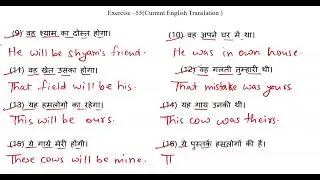 Exercise –55(Current English Translation )
(9) वह श्याम का दोस्त होगा। (10) वह अपने घर में था।
He will be Shyam's friend. He was in own house.
(11) वह खेत उसका होगा। (12) वह गलती तुम्हारी थी।
That field will be his. That mistake was yours
(13) यह हमलोगों का रहेगा। (14) यह गाय उनकी थी।
This will be ours. This cow was theirs.
(15) ये गायें मेरी होंगी। (16) ये पुस्तकें हमलोगों की हैं।
These cows will be mine. T